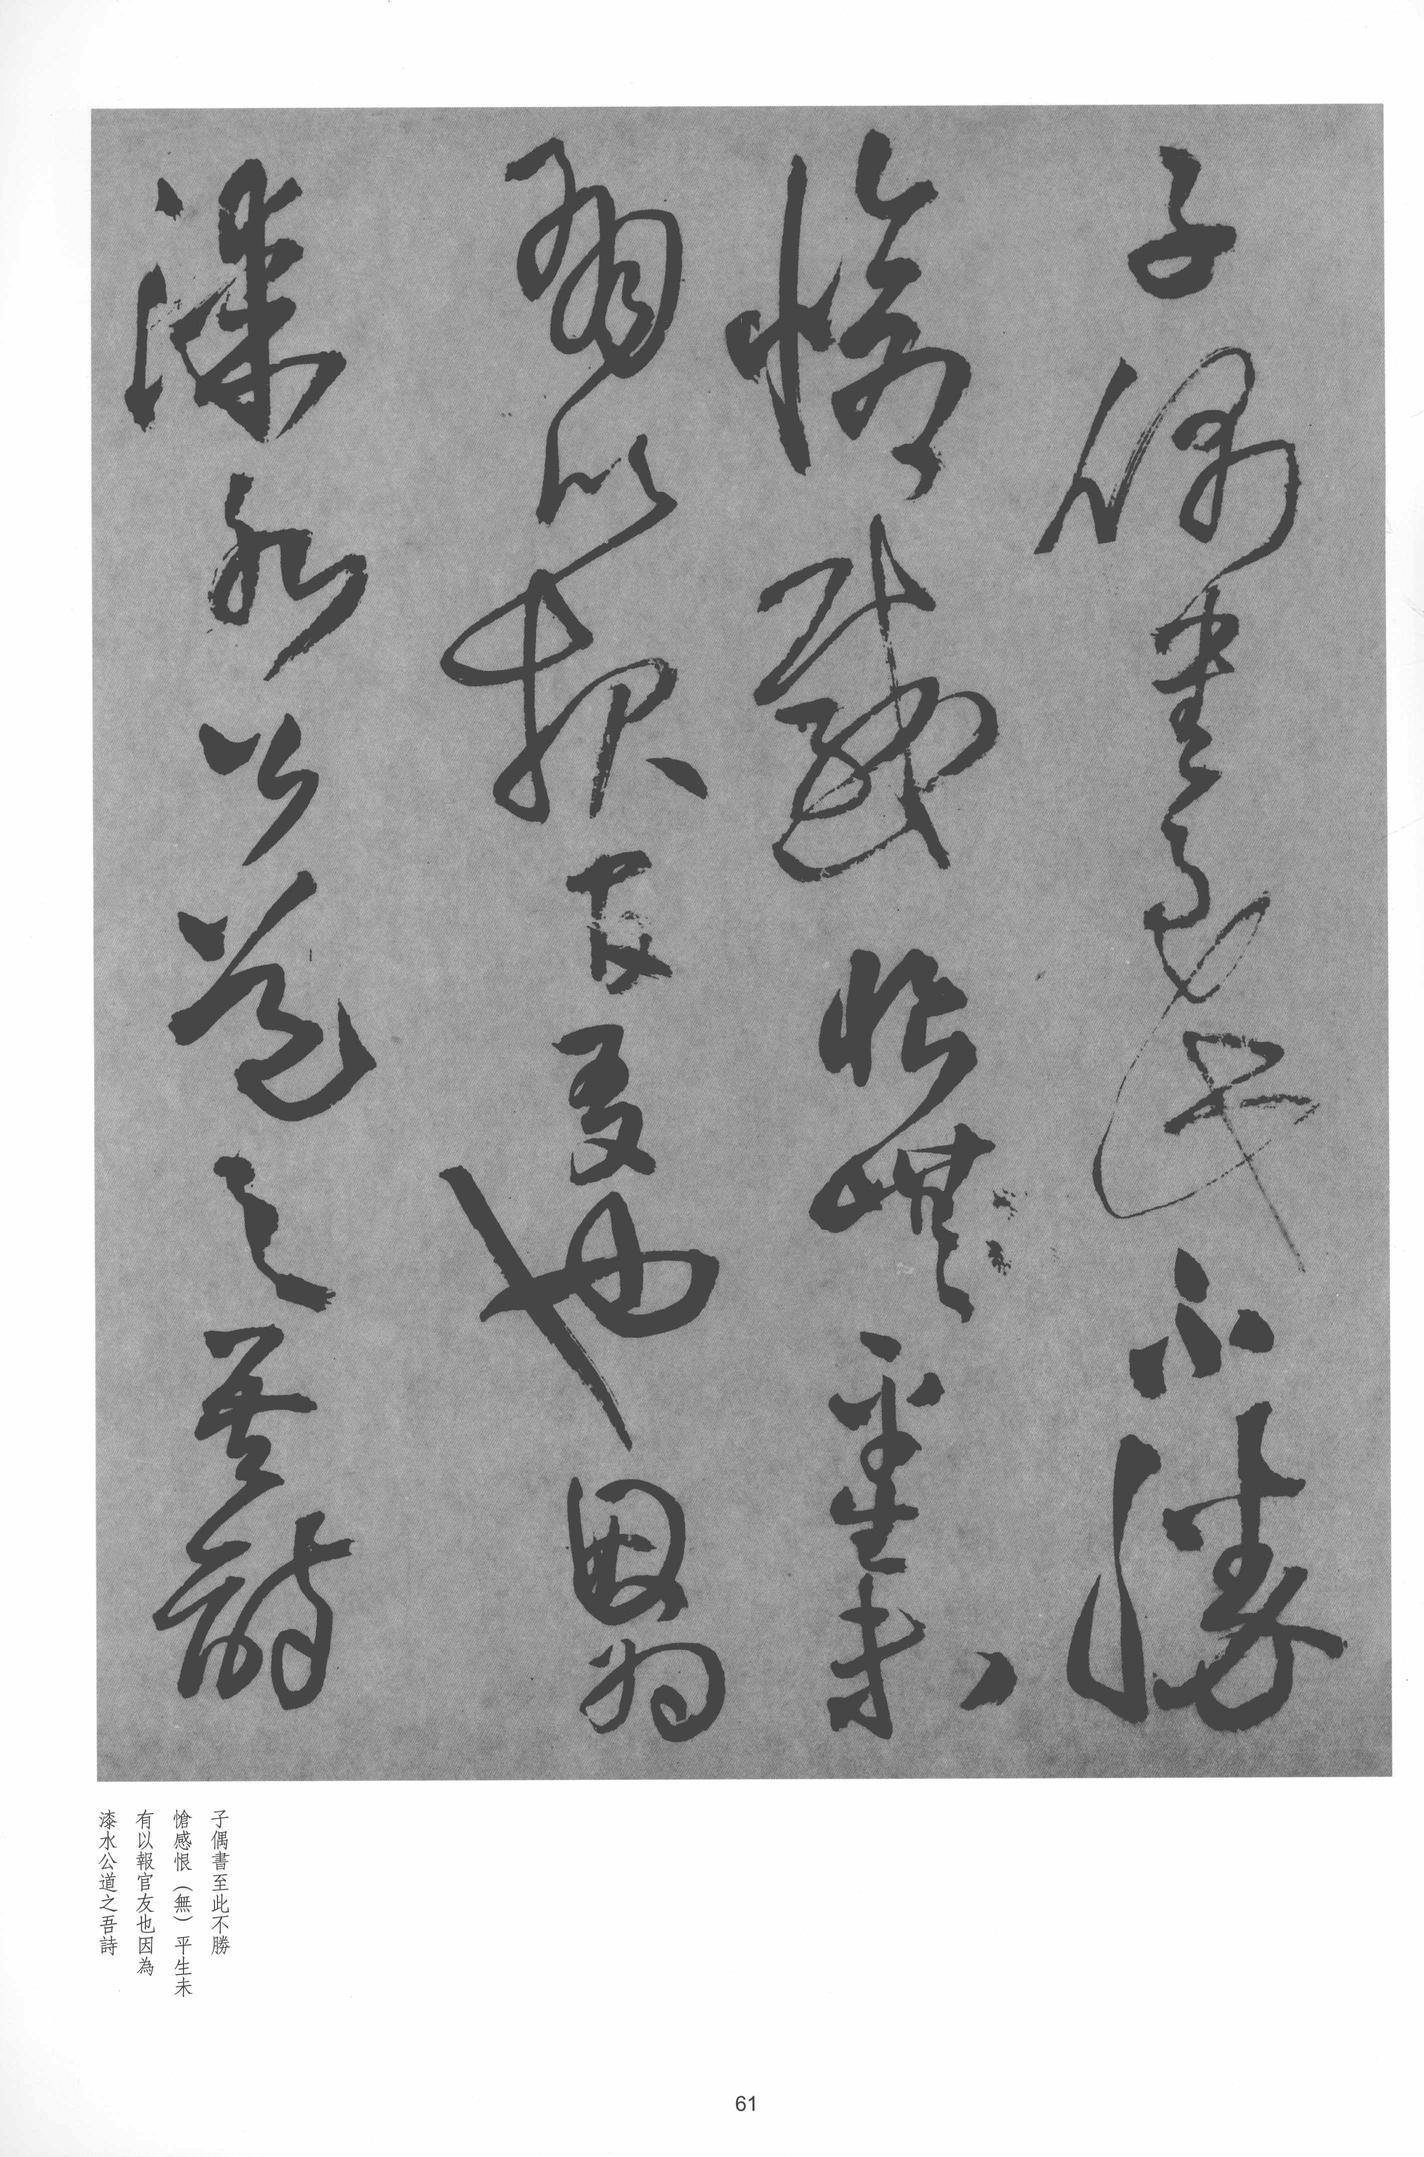 子偶書至此不勝
愴感恨無平生未
有以報官友也因為
漆水公道之吾詩
子偶書至此不勝
愴感恨（無）平生未
有以報官友也因為
漆水公道之吾詩
61